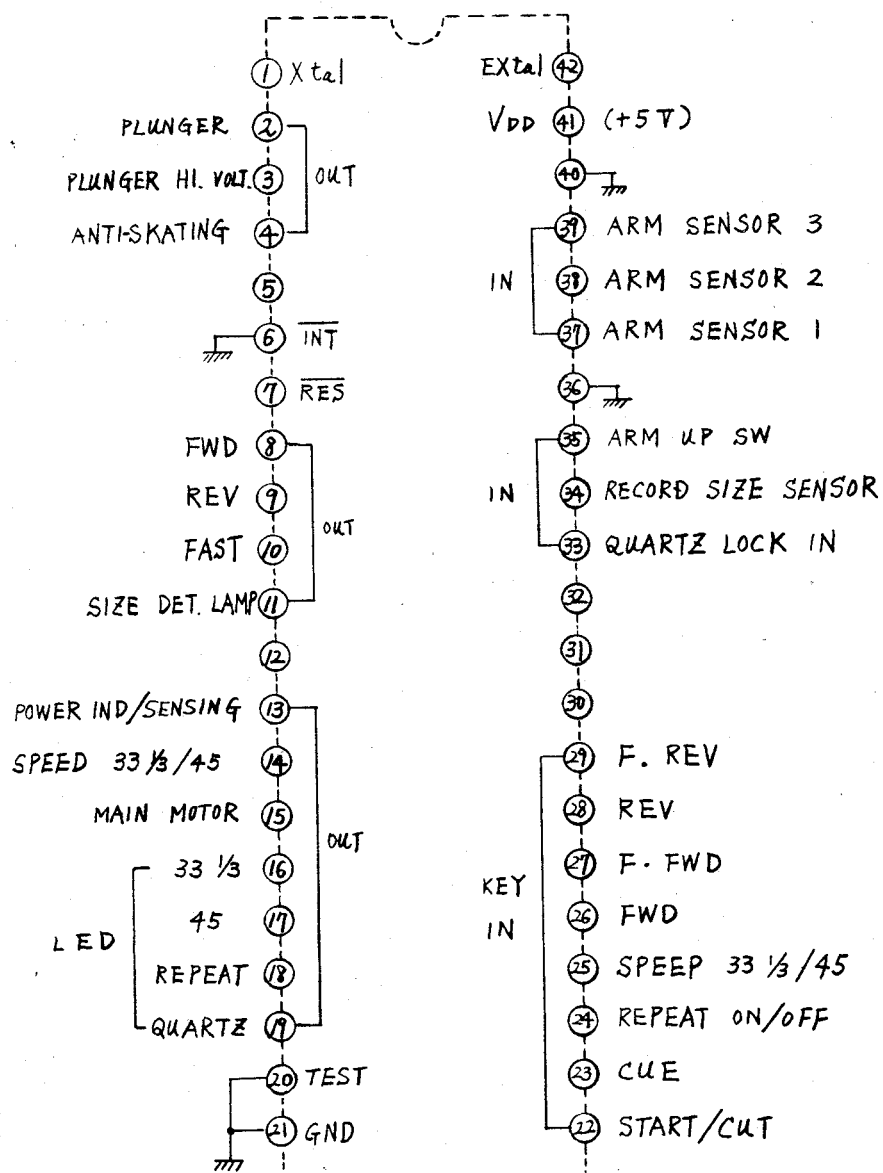 1 Xtal
PLUNGER 2
PLUNGER HI. VOLT. 3
OUT
ANTI-SKATING 4
5
6 INT
7 RES
FWD 8
REV 9
OUT
FAST 10
SIZE DET. LAMP 11
12
POWER IND/SENSING 13
SPEED 33 1/3/45 14
MAIN MOTOR 15
OUT
33 1/3 16
45 17
LED
REPEAT 18
QUARTZ 19
20 TEST
21 GND
EXtal 42
VDD 41 (+5V)
40
39 ARM SENSOR 3
IN
38 ARM SENSOR 2
37 ARM SENSOR 1
36
35 ARM UP SW
IN
34 RECORD SIZE SENSOR
33 QUARTZ LOCK IN
32
31
30
29 F. REV
28 REV
27 F. FWD
KEY
IN
26 FWD
25 SPEEP 33 1/3/45
24 REPEAT ON/OFF
23 CUE
22 START/CUT